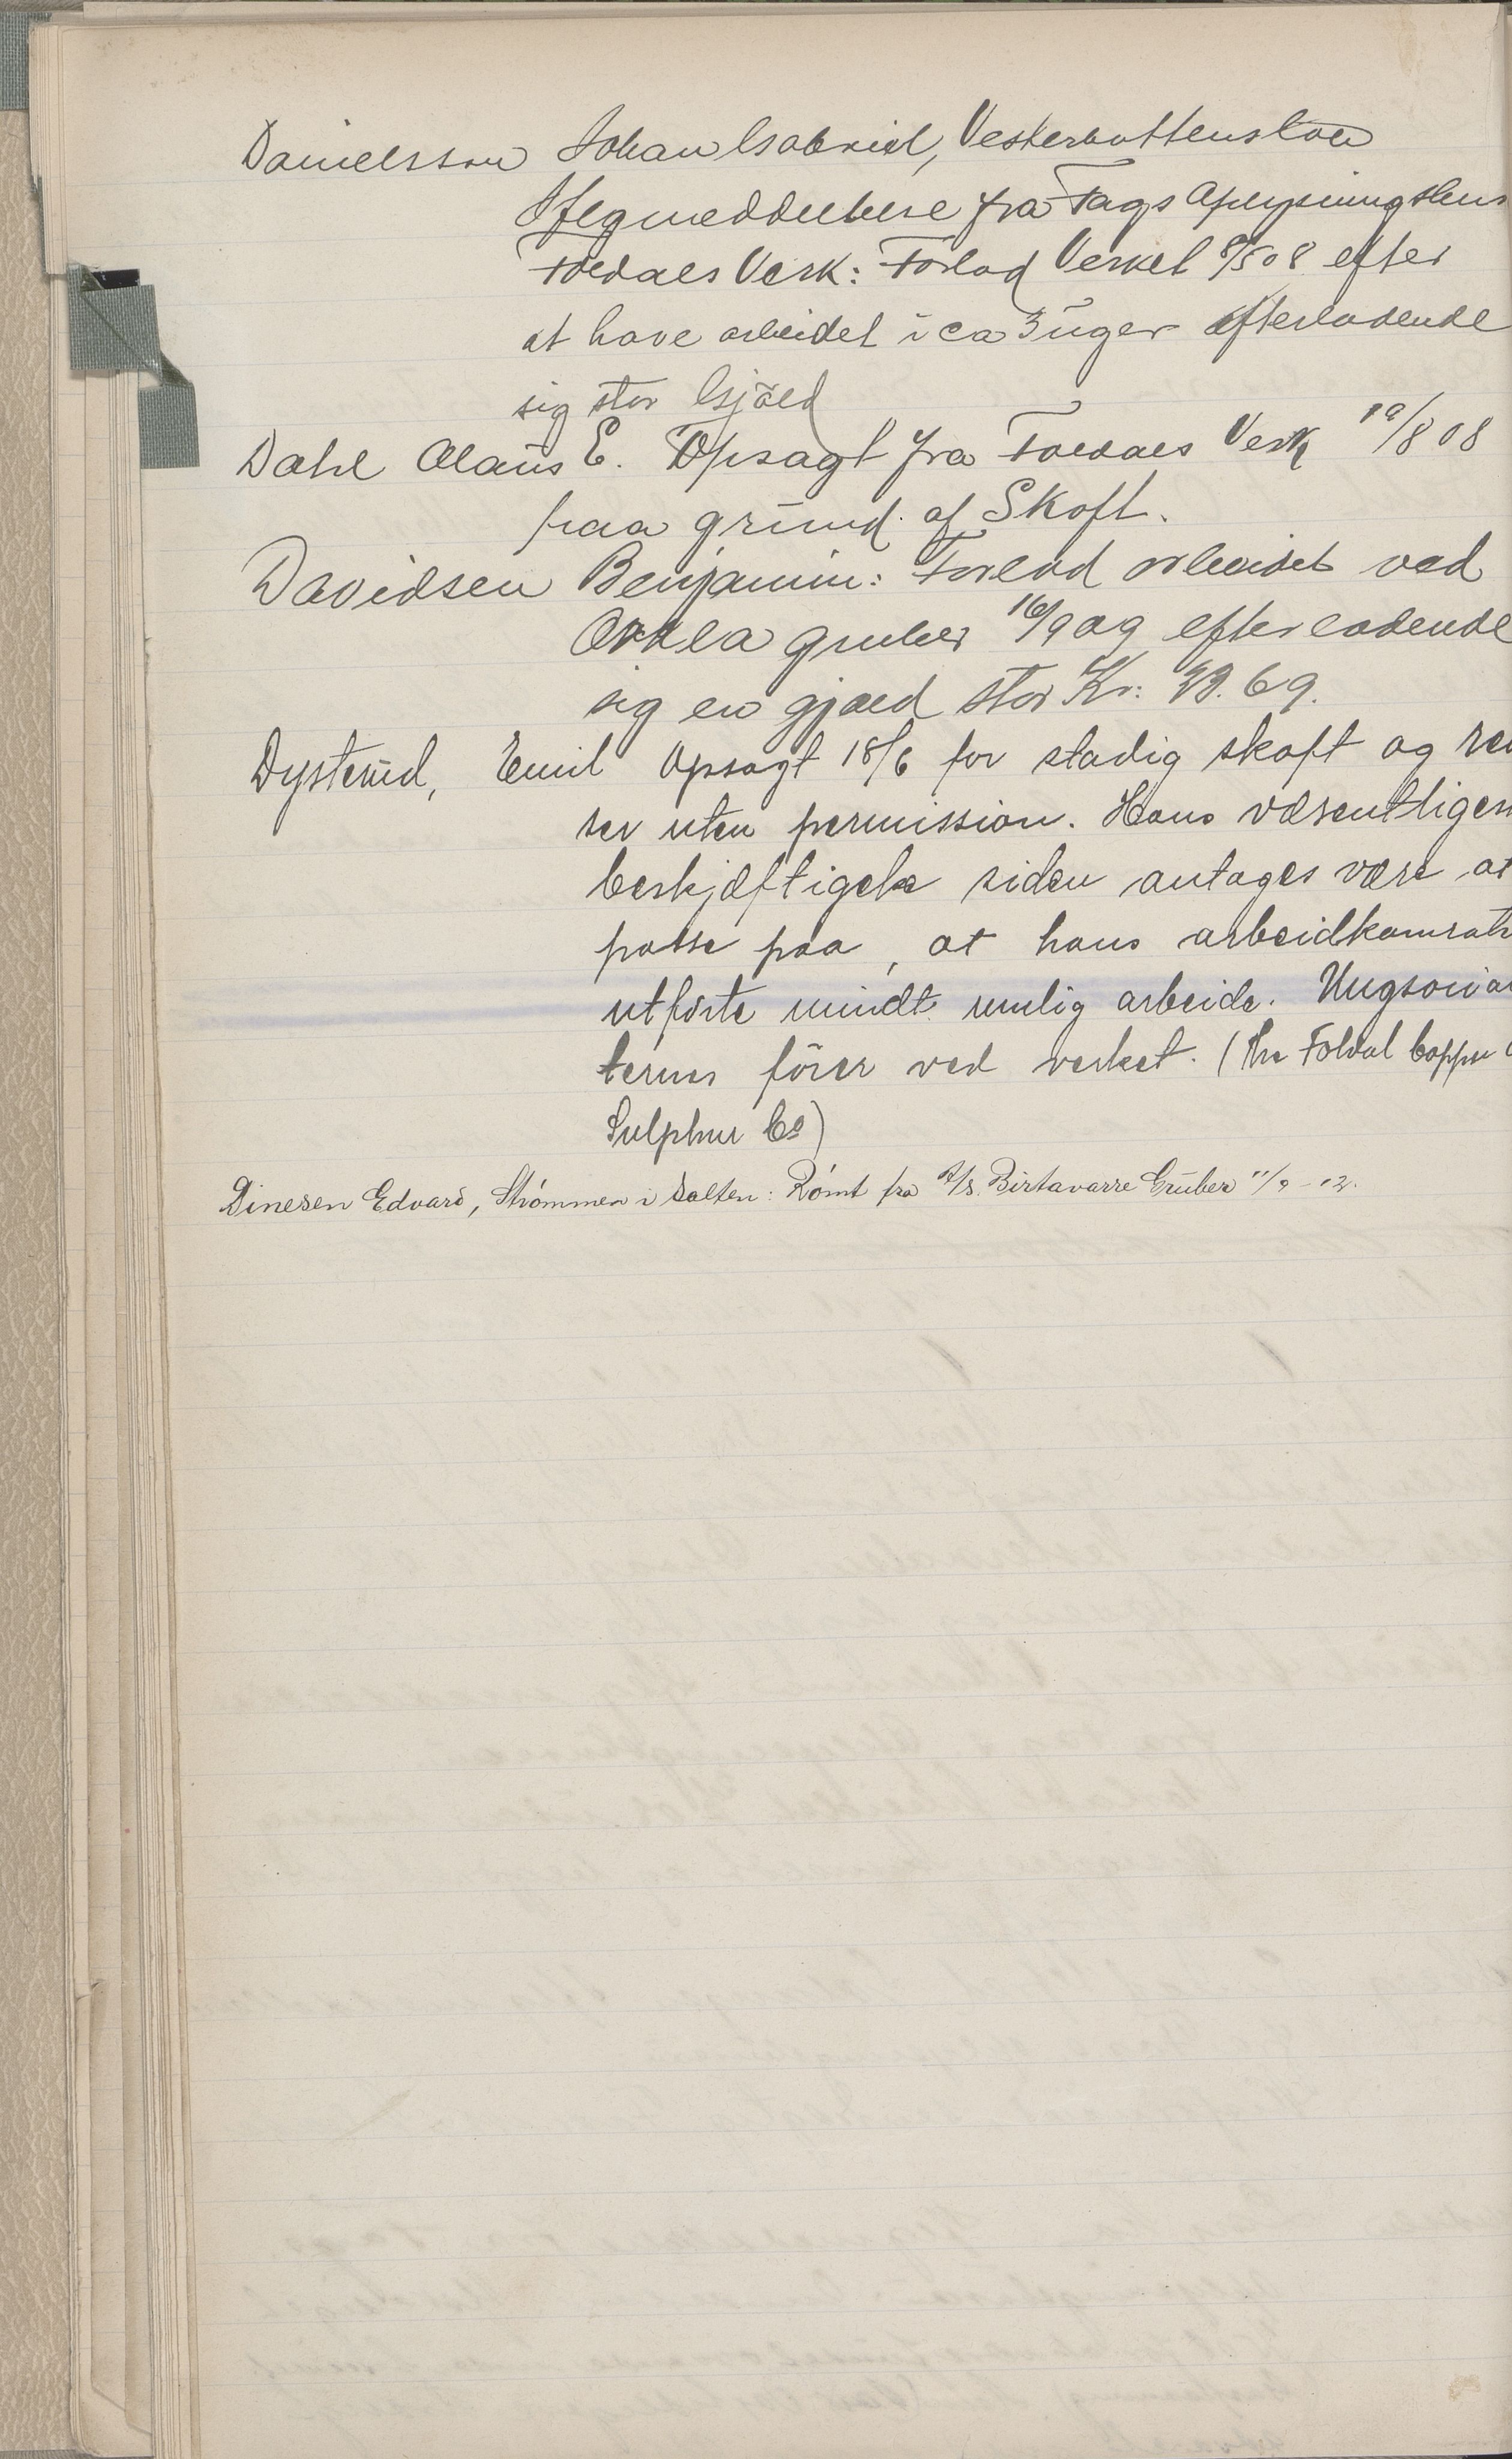 Danielsson Johan Gabriel, Vesterbottenslän
Iflg meddelelse fra Fags Oplysning
Foldals Verk: Forlod Verket 8/5 08 efter
at have arbeidet i ca 3 uger efterladende
sig stor Gjæld
Dahl Olaus E. Opsagt fra Foldals Verk 19/8 08
paa grund af Skoft.
Davidsen Benjamin: Forlod arbeidet ved
Orkla gruber 16/9 09 efterladende
sig en gjæld stor Kr: 69.
Dysterud, Emil Opsagt 18/6 for stadig skoft og rei
ser uten permission. Hans væsentligen
beskjæftigelse siden antages være at
passe paa, at hans arbeidkamrate
utførte mindt mulig arbeide. Ungsocia
ternes fører ved verket. (The Foldal Copper
Sulphur Co)
Dinesen Edvard, Strömmen i Salten: Römt fra A/S. Birtavarre Gruber 11/9-12.